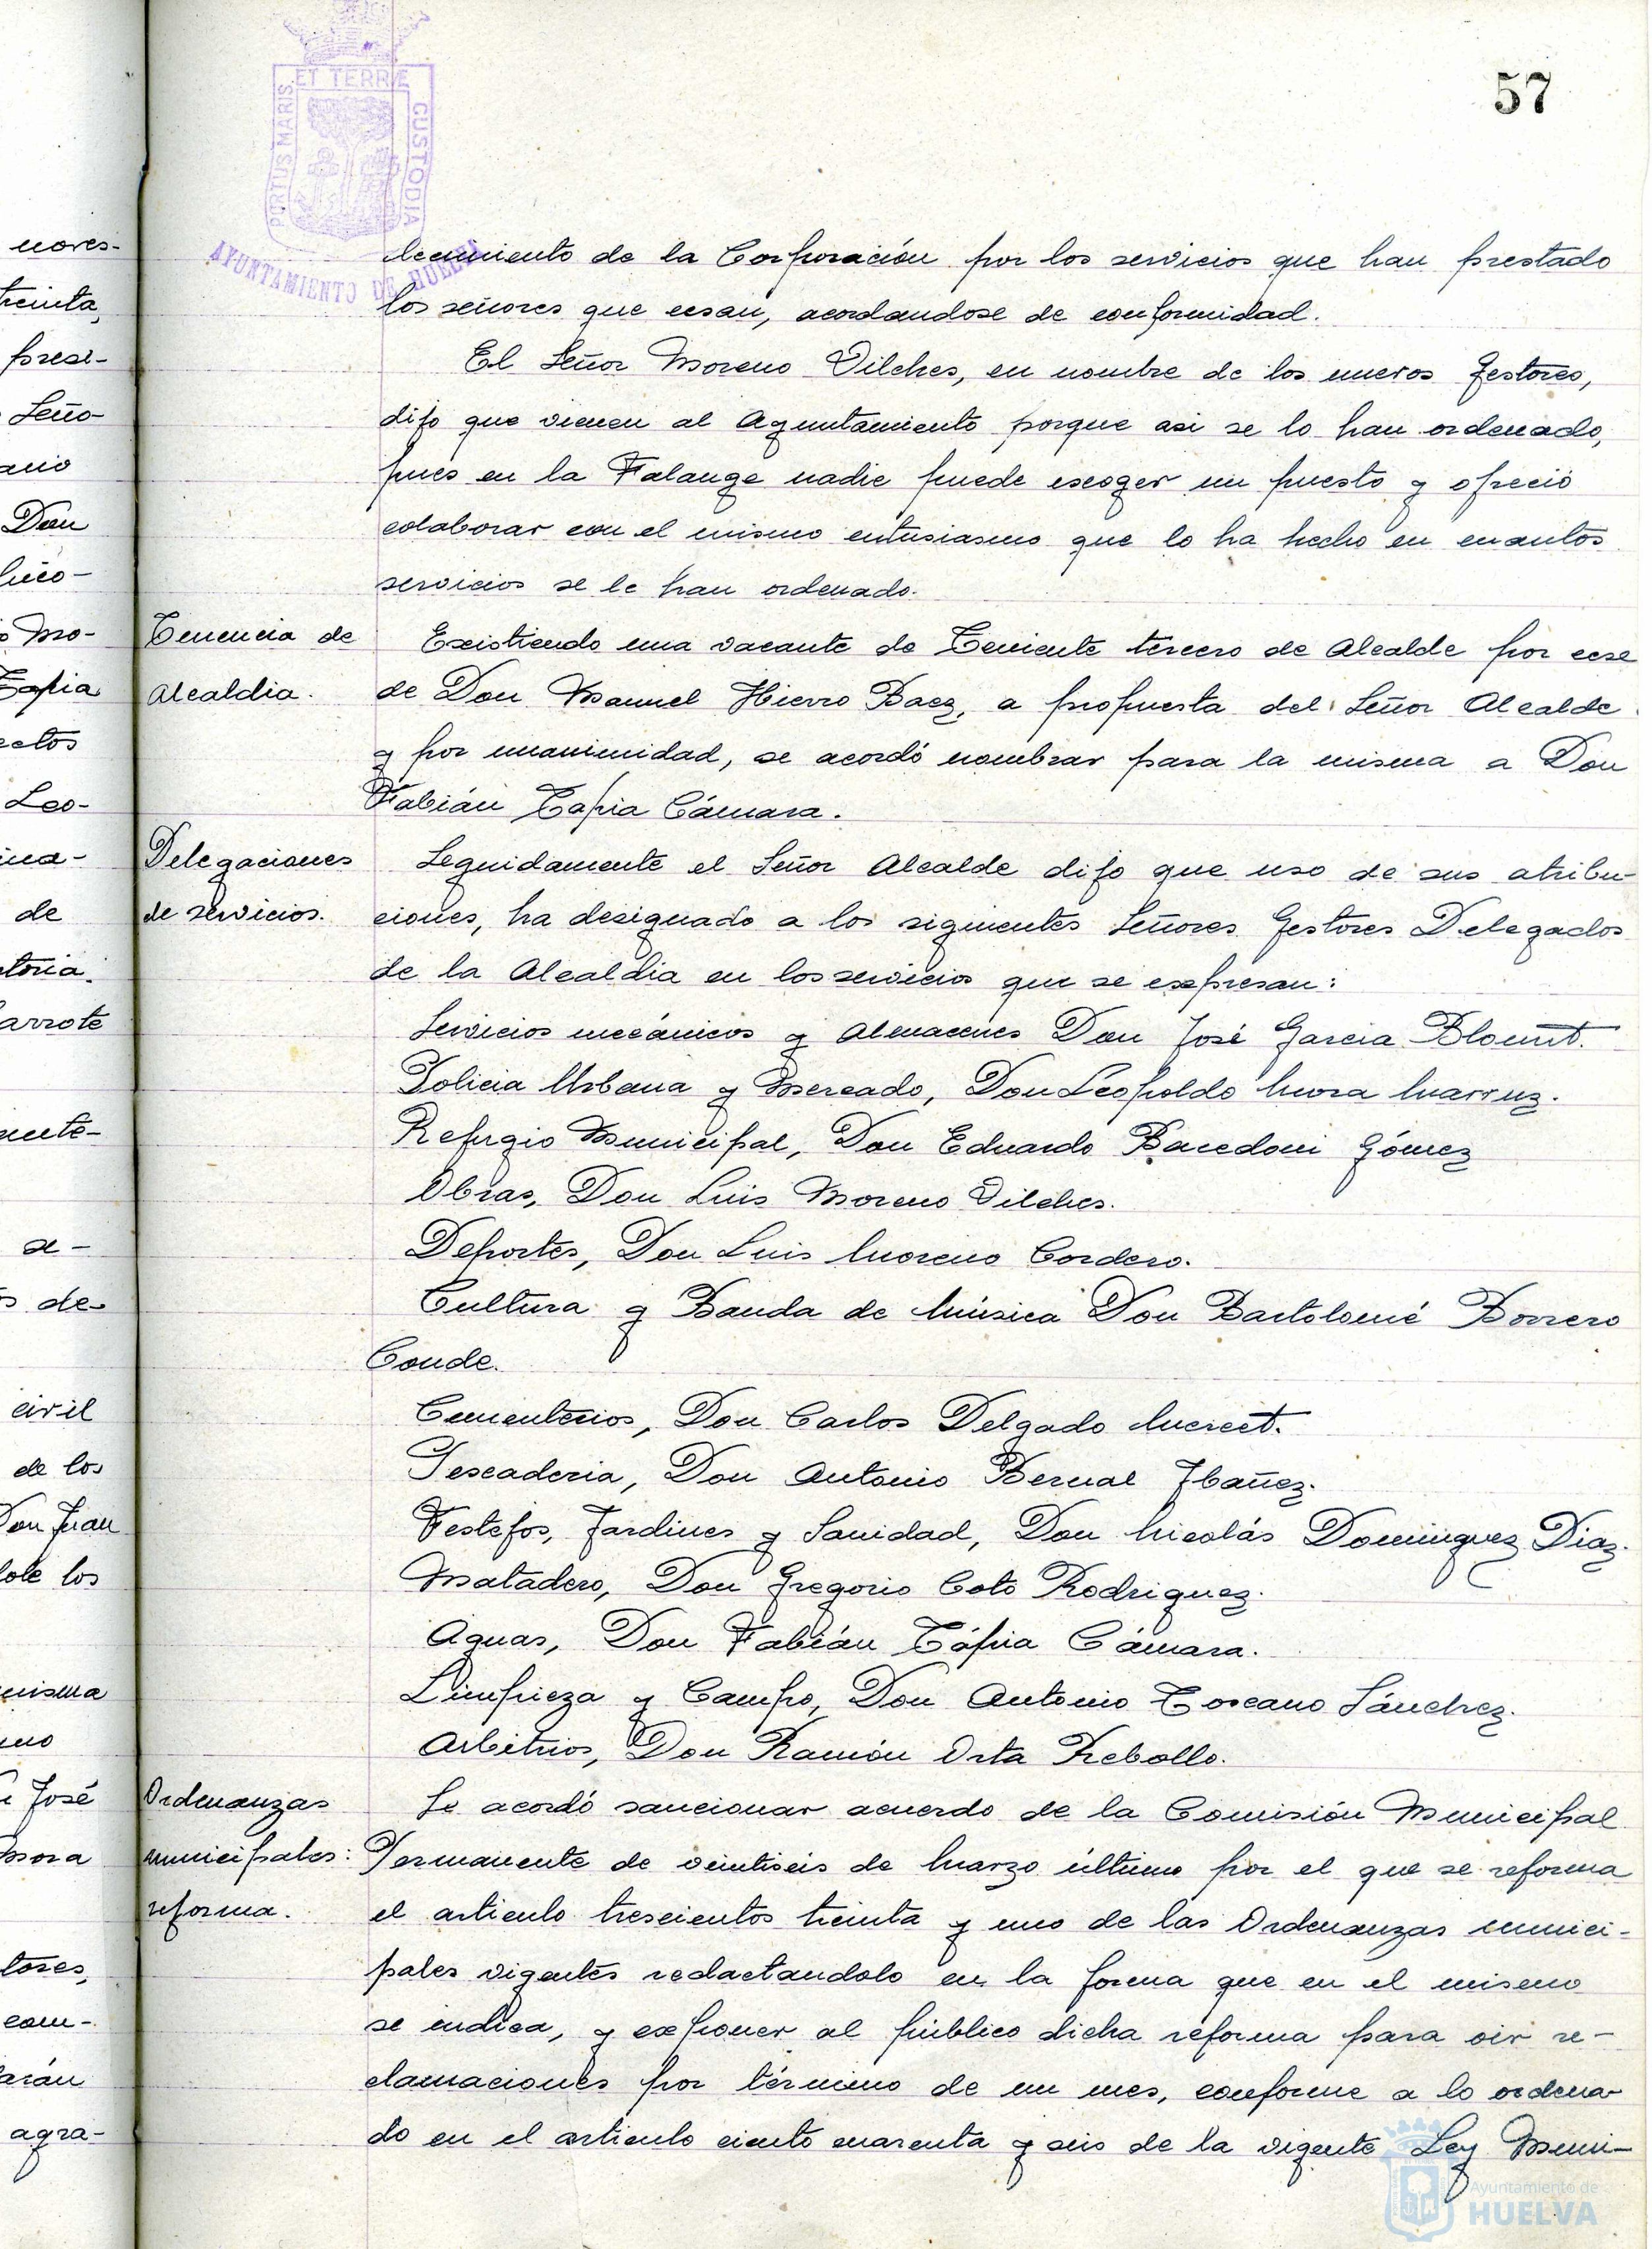 57
PORTUS MARIS ET TERRE CUSTODIA
AYUNTAMIENTO DE HUELVA
nores-
treinta,
presi-
Seño-
ario
Don
o Mo-
Tapia
ectos
Leo-
ina-
de
toria.
arrote
mente-
a-
s de-
civil
de los
Don Juan
dole los
misma
José
Mora
tores,
com-
arán
agra-
decimiento de la Corporación por los servicios que han prestado
los señores que cesan, acordandose de conformidad.
El Señor Moreno Vilches, en nombre de los nuevos Gestores,
dijo que vienen al Ayuntamiento porque asi se lo han ordenado,
pues en la Falange nadie puede escoger un puesto y ofreció
colaborar con el mismo entusiasmo que lo ha hecho en cuantos
servicios se le han ordenado.
Tenencia de
Alcaldia.
Existiendo una vacante de Teniente tercero de Alcalde por cese
de Don Manuel Hierro Baez, a propuesta del Señor Alcalde
y por unanimidad, se acordó nombrar para la misma a Don
Fabián Tapia Cámara.
Delegaciones
de servicios.
Seguidamente el Señor Alcalde dijo que uso de sus atribu-
ciones, ha designado a los siguientes Señores Gestores Delegados
de la Alcaldia en los servicios que se expresan:
Servicios mecánicos y Almacenes Don José Garcia Blount.
Policia Urbana y Mercado, Don Leopoldo Mora Marruz.
Refugio Municipal, Don Eduardo Bacedoni Gómez
Obras, Don Luis Moreno Vilches.
Deportes, Don Luis Moreno Cordero.
Cultura y Banda de Música Don Bartolomé Borrero
Conde.
Cementerios, Don Carlos Delgado Mercet.
Pescaderia, Don Antonio Bernal Ibañez.
Festejos, Jardines y Sanidad, Don Nicolás Dominguez Diaz.
Matadero, Don Gregorio Coto Rodriguez.
Aguas, Don Fabián Tápia Cámara.
Limpieza y Campo, Don Antonio Toscano Sánchez.
Arbitrios, Don Ramón Orta Rebollo.
Ordenanzas
municipales:
reforma.
Se acordó sancionar acuerdo de la Comisión Municipal
Permanente de veintiseis de Marzo último por el que se reforma
el articulo trescientos treinta y uno de las Ordenanzas munici-
pales vigentes redactandolo en la forma que en el mismo
se indica, y exponer al público dicha reforma para oir re-
clamaciones por término de un mes, conforme a lo ordena-
do en el articulo ciento cuarenta y seis de la vigente Ley Muni-
Ayuntamiento de
HUELVA